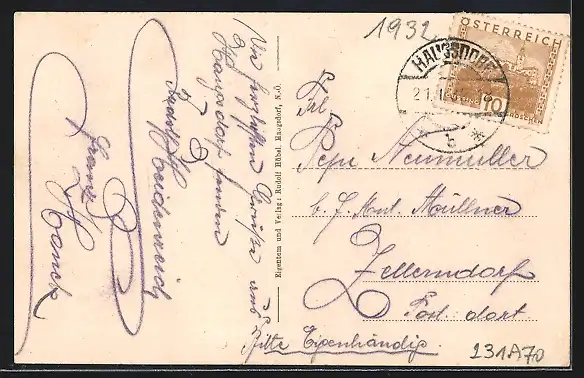 1932
ÖSTERREICH
10
GROSCHEN
HAUGSDORF
21.
b
Die herzlichsten Grüße aus
Haugsdorf senden
Rudolf Heidenreich
Franz
Eigentum und Verlag: Rudolf Hübel, Haugsdorf, N.-Ö.
Frl.
Pepi Neumüller
b. J. Müllner
Zellerndorf
Post: dort
Bitte Eigenhändig.
231A70